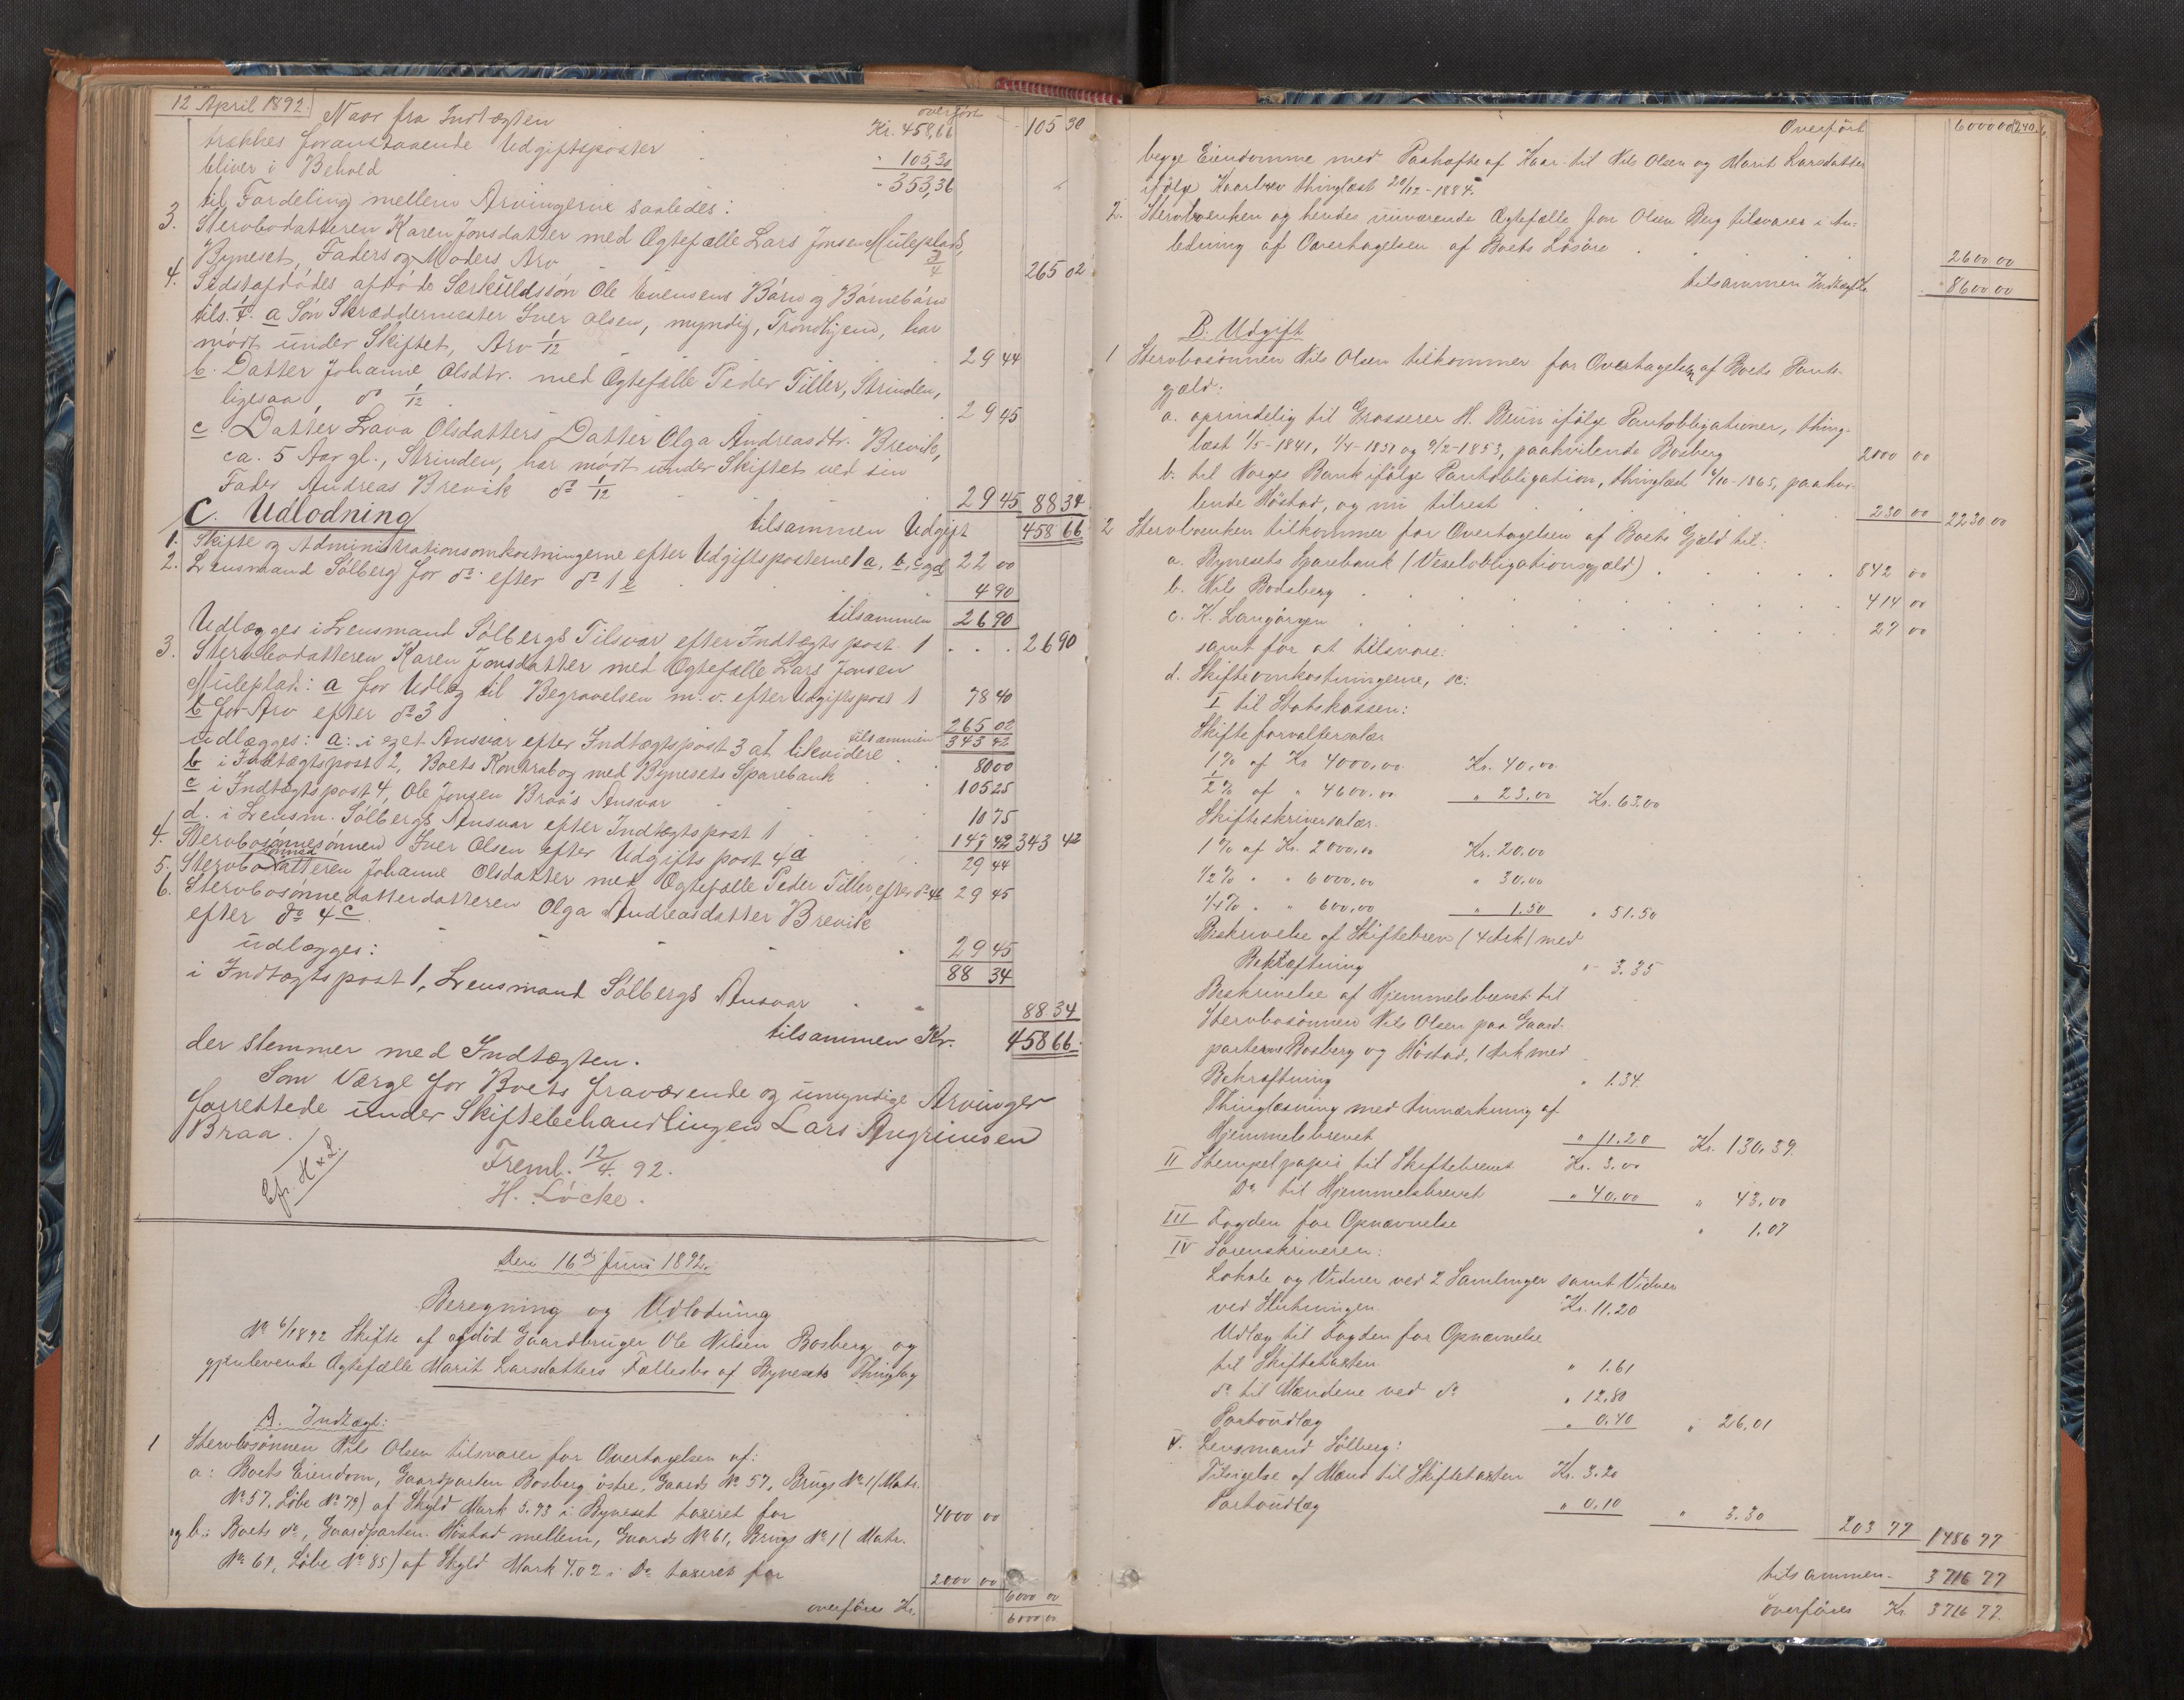 12 April 1892.
overført
105 30
Naar fra Indtægten Kr. 458,66
trækkes foranstaaende Udgiftsposter " 105,30
bliver i Behold " 353,36
til Fordeling mellem Arvingerne saaledes:
3. Stervbodatteren Karen Jonsdatter med Ægtefælle Lars Jonsen Muleplads,
Byneset, Faders og Moders Arv 3/4 265 02
4. Sidstafdødes afdøde Særkuldssøn Ole Evensens Børn og Børnebørn
tils. 1/4. a Søn Skræddermester Iver Olsen, myndig, Trondhjem, har
mødt under Skiftet, Arv 1/12 29 44
b. Datter Johanne Olsdtr. med Ægtefælle Peder Tiller, Strinden,
ligesaa, do 1/12 29 45
c. Datter Lava Olsdatters Datter Olga Andreasdtr. Brevik,
ca. 5 Aar gl., Strinden, har mødt under Skiftet ved sin
Fader Andreas Brevik do 1/12 29 45 88 34
tilsammen Udgift 458 66
C. Udlodning
1. Skifte og Administrationsomkostningerne efter Udgiftsposterne 1 a, b, c og d 22 00
2. Lensmand Sølberg for do efter do 1 e 4 90
tilsammen 26 90
Udlægges i Lensmand Sølbergs Tilsvar efter Indtægtspost 1 . . . 26 90
3. Stervbodatteren Karen Jonsdatter med Ægtefælle Lars Jonsen
Muleplads: a for Udlæg til Begravelsen m. v. efter Udgiftspost 1 78 40
b for Arv efter do 3 265 02
tilsammen 343 42
udlægges: a: i eget Ansvar efter Indtægtspost 3 at likvidere 80 00
b i Indtægtspost 2, Boets Kontrabog med Bynesets Sparebank 105 25
c i Indtægtspost 4, Ole Jonsen Braa's Ansvar 10 75
d. i Lensm. Sølbergs Ansvar efter Indtægtspost 1 147 42 343 42
4. Stervbosønnesønnen Iver Olsen efter Udgiftspost 4 a 29 44
5. Stervbosønnedatteren Johanne Olsdatter med Ægtefælle Peder Tiller, efter do 4b 29 45
6. Stervbosønnedatterdatteren Olga Andreasdatter Brevik
efter do 4 c 29 45
udlægges: 88 34
i Indtægtspost 1, Lensmand Sølbergs Ansvar 88 34
tilsammen Kr. 458 66.
der stemmer med Indtægten.
Som Værge for Boets fraværende og umyndige Arvinger
forrettede under Skiftebehandlingen Lars Angrimsen
Braa.
Freml. 12/4. 92.
H. Löcke.
Den 16de Juni 1892.
Beregning og Udlodning
No 6/1892 Skifte af afdød Gaardbruger Ole Nilsen Bosberg og
gjenlevende Ægtefælle Marit Larsdatters Fællesbo af Bynesets Thinglag
A. Indtægt:
1 Stervbosønnen Nils Olsen tilsvarer for Overtagelsen af:
a: Boets Eiendom, Gaardparten Bosberg østre, Gaards No 57, Brugs No 1 (Matr.
No 57, Løbe No 79) af Skyld Mark 5.93 i Byneset taxeret for 4000 00
og b: Boets do, Gaardparten Høstad mellem, Gaards No 61, Brugs No 1 (Matr.
No 61, Løbe No 85) af Skyld Mark 4.02 i do taxeret for 2000 00 6000 00
overføres Kr. 6000 00
Overført 6000 00
begge Eiendomme med Paahæfte af Kaar til Nils Olsen og Marit Larsdatter
ifølge Kaarbrev thinglæst 20/12-1884.
2. Stervboenken og hendes nuværende Ægtefælle Jon Olsen Berg tilsvarer i An-
ledning af Overtagelsen af Boets Løsøre 2600 00
tilsammen Indtægt Kr. 8600 00
B. Udgift
1 Stervbosønnen Nils Olsen tilkommer for Overtagelsen af Boets Pante-
gjæld:
a. oprindelig til Grosserer H. Buun ifølge Pantobligationer, thing-
læst 1/5-1841, 1/4-1851 og 9/2-1853, paahvilende Bosberg 2000 00
b. til Norges Bank ifølge Pantobligation, thinglæst 4/10-1865, paahvi-
lende Høstad, og nu tilrest 230 00 2230 00
2 Stervboenken tilkommer for Overtagelsen af Boets Gjæld til:
a. Bynesets Sparebank (Vexelobligationsgjæld) 842 00
b. Nils Bodsberg 414 00
c. K. Langørgen 27 00
samt for at tilsvare:
d. Skifteomkostningerne, sc:
I til Statskassen:
Skifteforvaltersalær
1% af Kr 4000,00 Kr. 40,00
1/2% af " 4600.00 " 23,00 Kr. 63,00
Skifteskriversalær.
1% af Kr. 2000,00 Kr. 20.00
1/2% " " 6000,00 " 30,00
1/4% " " 600,00 " 1.50 " 51.50
Beskrivelse af Skiftebrev (4 Ark) med
Bekræftning " 3.35
Beskrivelse af Hjemmelsbrevet til
Stervbosønnen Nils Olsen paa Gaard-
parterne Bosberg og Høstad, 1 Ark med
Bekræftning " 1.34
Thinglæsning med Anmærkning af
Hjemmelsbrevet " 11.20 Kr. 130,39.
II Stempelpapir til Skiftebrevet Kr. 3.00
Do til Hjemmelsbrevet " 40,00 " 43,00
III Fogden for Opnævnelse " 1.07
IV Sorenskriveren:
Lokale og Vidner ved 2 Samlinger samt Vidner
ved Slutningen Kr. 11.20
Udlæg til Fogden for Opnævnelse
til Skiftetaxten " 1.61
do til Mændene ved do " 12,80
Portoudlæg " 0.40 " 26,01
V. Lensmand Sølberg:
Tilsigelse af Mænd til Skiftetaxten Kr. 3.20
Portoudlæg " 0,10 " 3.30 203 77 1486 77
tilsammen 3716 77
overføres Kr. 3716 77.